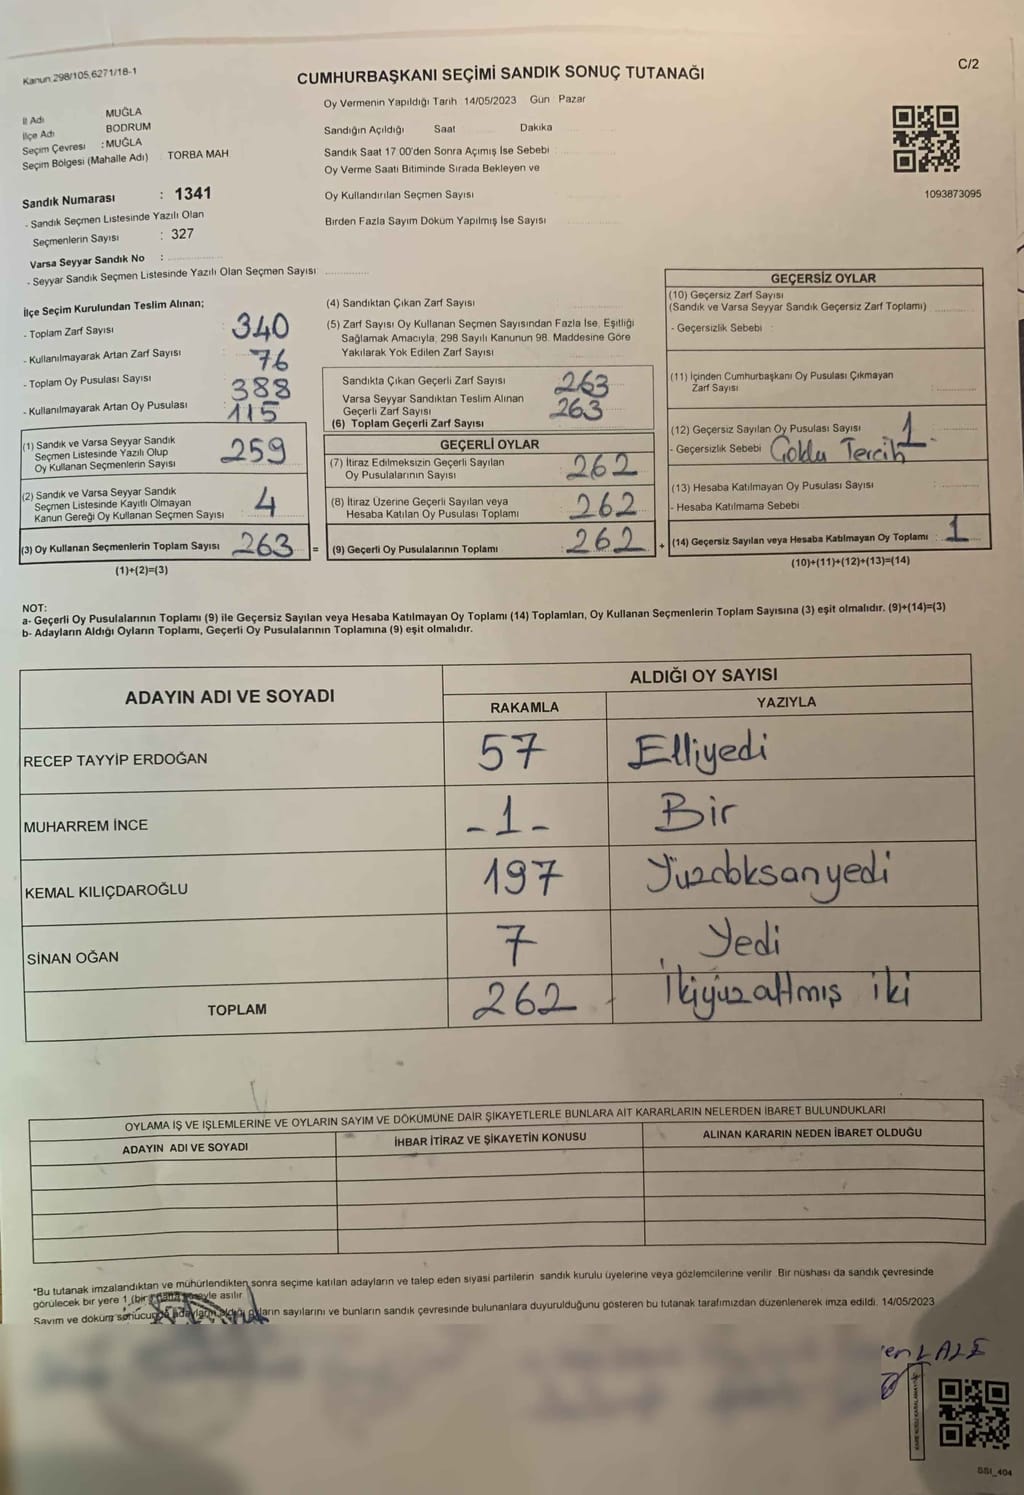 Kanun 298/105,6271/18-1
CUMHURBAŞKANI SEÇİMİ SANDIK SONUÇ TUTANAĞI
C/2
İl Adı MUĞLA
İlçe Adı BODRUM
Seçim Çevresi : MUĞLA
Seçim Bölgesi (Mahalle Adı) TORBA MAH
Sandık Numarası : 1341
- Sandık Seçmen Listesinde Yazılı Olan
Seçmenlerin Sayısı : 327
Varsa Seyyar Sandık No :
- Seyyar Sandık Seçmen Listesinde Yazılı Olan Seçmen Sayısı
Oy Vermenin Yapıldığı Tarih 14/05/2023 Gün Pazar
Sandığın Açıldığı Saat Dakika
Sandık Saat 17 00'den Sonra Açımış İse Sebebi
Oy Verme Saati Bitiminde Sırada Bekleyen ve
Oy Kullandırılan Seçmen Sayısı
Birden Fazla Sayım Döküm Yapılmış İse Sayısı
1093873095
İlçe Seçim Kurulundan Teslim Alınan;
- Toplam Zarf Sayısı 340
- Kullanılmayarak Artan Zarf Sayısı 76
- Toplam Oy Pusulası Sayısı 388
- Kullanılmayarak Artan Oy Pusulası 115
(1) Sandık ve Varsa Seyyar Sandık
Seçmen Listesinde Yazılı Olup
Oy Kullanan Seçmenlerin Sayısı 259
(2) Sandık ve Varsa Seyyar Sandık
Seçmen Listesinde Kayıtlı Olmayan
Kanun Gereği Oy Kullanan Seçmen Sayısı 4
(3) Oy Kullanan Seçmenlerin Toplam Sayısı 263 =
(1)+(2)=(3)
(4) Sandıktan Çıkan Zarf Sayısı
(5) Zarf Sayısı Oy Kullanan Seçmen Sayısından Fazla İse, Eşitliği
Sağlamak Amacıyla, 298 Sayılı Kanunun 98. Maddesine Göre
Yakılarak Yok Edilen Zarf Sayısı
Sandıkta Çıkan Geçerli Zarf Sayısı 263
Varsa Seyyar Sandıktan Teslim Alınan
Geçerli Zarf Sayısı 263
(6) Toplam Geçerli Zarf Sayısı
GEÇERLİ OYLAR
(7) İtiraz Edilmeksizin Geçerli Sayılan
Oy Pusulalarının Sayısı 262
(8) İtiraz Üzerine Geçerli Sayılan veya
Hesaba Katılan Oy Pusulası Toplamı 262
(9) Geçerli Oy Pusulalarının Toplamı 262 +
GEÇERSİZ OYLAR
(10) Geçersiz Zarf Sayısı
(Sandık ve Varsa Seyyar Sandık Geçersiz Zarf Toplamı)
- Geçersizlik Sebebi :
(11) İçinden Cumhurbaşkanı Oy Pusulası Çıkmayan
Zarf Sayısı
(12) Geçersiz Sayılan Oy Pusulası Sayısı 1
- Geçersizlik Sebebi Çoklu Tercih
(13) Hesaba Katılmayan Oy Pusulası Sayısı
- Hesaba Katılmama Sebebi
(14) Geçersiz Sayılan veya Hesaba Katılmayan Oy Toplamı : 1
(10)+(11)+(12)+(13)=(14)
NOT:
a- Geçerli Oy Pusulalarının Toplamı (9) ile Geçersiz Sayılan veya Hesaba Katılmayan Oy Toplamı (14) Toplamları, Oy Kullanan Seçmenlerin Toplam Sayısına (3) eşit olmalıdır. (9)+(14)=(3)
b- Adayların Aldığı Oyların Toplamı, Geçerli Oy Pusulalarının Toplamına (9) eşit olmalıdır.
ADAYIN ADI VE SOYADI ALDIĞI OY SAYISI
RAKAMLA YAZIYLA
RECEP TAYYİP ERDOĞAN 57 Elliyedi
MUHARREM İNCE -1- Bir
KEMAL KILIÇDAROĞLU 197 Yüzdoksanyedi
SİNAN OĞAN 7 Yedi
TOPLAM 262 İkiyüzaltmış iki
OYLAMA İŞ VE İŞLEMLERİNE VE OYLARIN SAYIM VE DÖKÜMÜNE DAİR ŞİKAYETLERLE BUNLARA AİT KARARLARIN NELERDEN İBARET BULUNDUKLARI
ADAYIN ADI VE SOYADI İHBAR İTİRAZ VE ŞİKAYETİN KONUSU ALINAN KARARIN NEDEN İBARET OLDUĞU
*Bu tutanak imzalandıktan ve mühürlendikten sonra seçime katılan adayların ve talep eden siyasi partilerin sandık kurulu üyelerine veya gözlemcilerine verilir. Bir nüshası da sandık çevresinde
görülecek bir yere 1 (bir) asılır
Sayım ve döküm sonucunda adayların aldığı oyların sayılarını ve bunların sandık çevresinde bulunanlara duyurulduğunu gösteren bu tutanak tarafımızdan düzenlenerek imza edildi. 14/05/2023
LALE
SSI_404